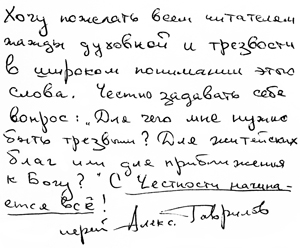 Хочу пожелать всем читателям
жажды духовной и трезвости
в широком понимании этого
слова. Честно задавать себе
вопрос: „Для чего мне нужно
быть трезвым? Для житейских
благ или для приближения
к Богу?" С Честности начина-
ется всё!
иерей Алекс. Гаврилов